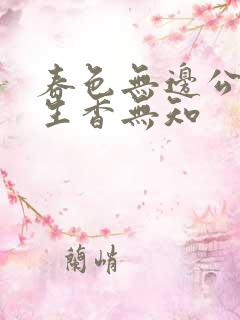 春色無邊公
生香無知
蘭峭